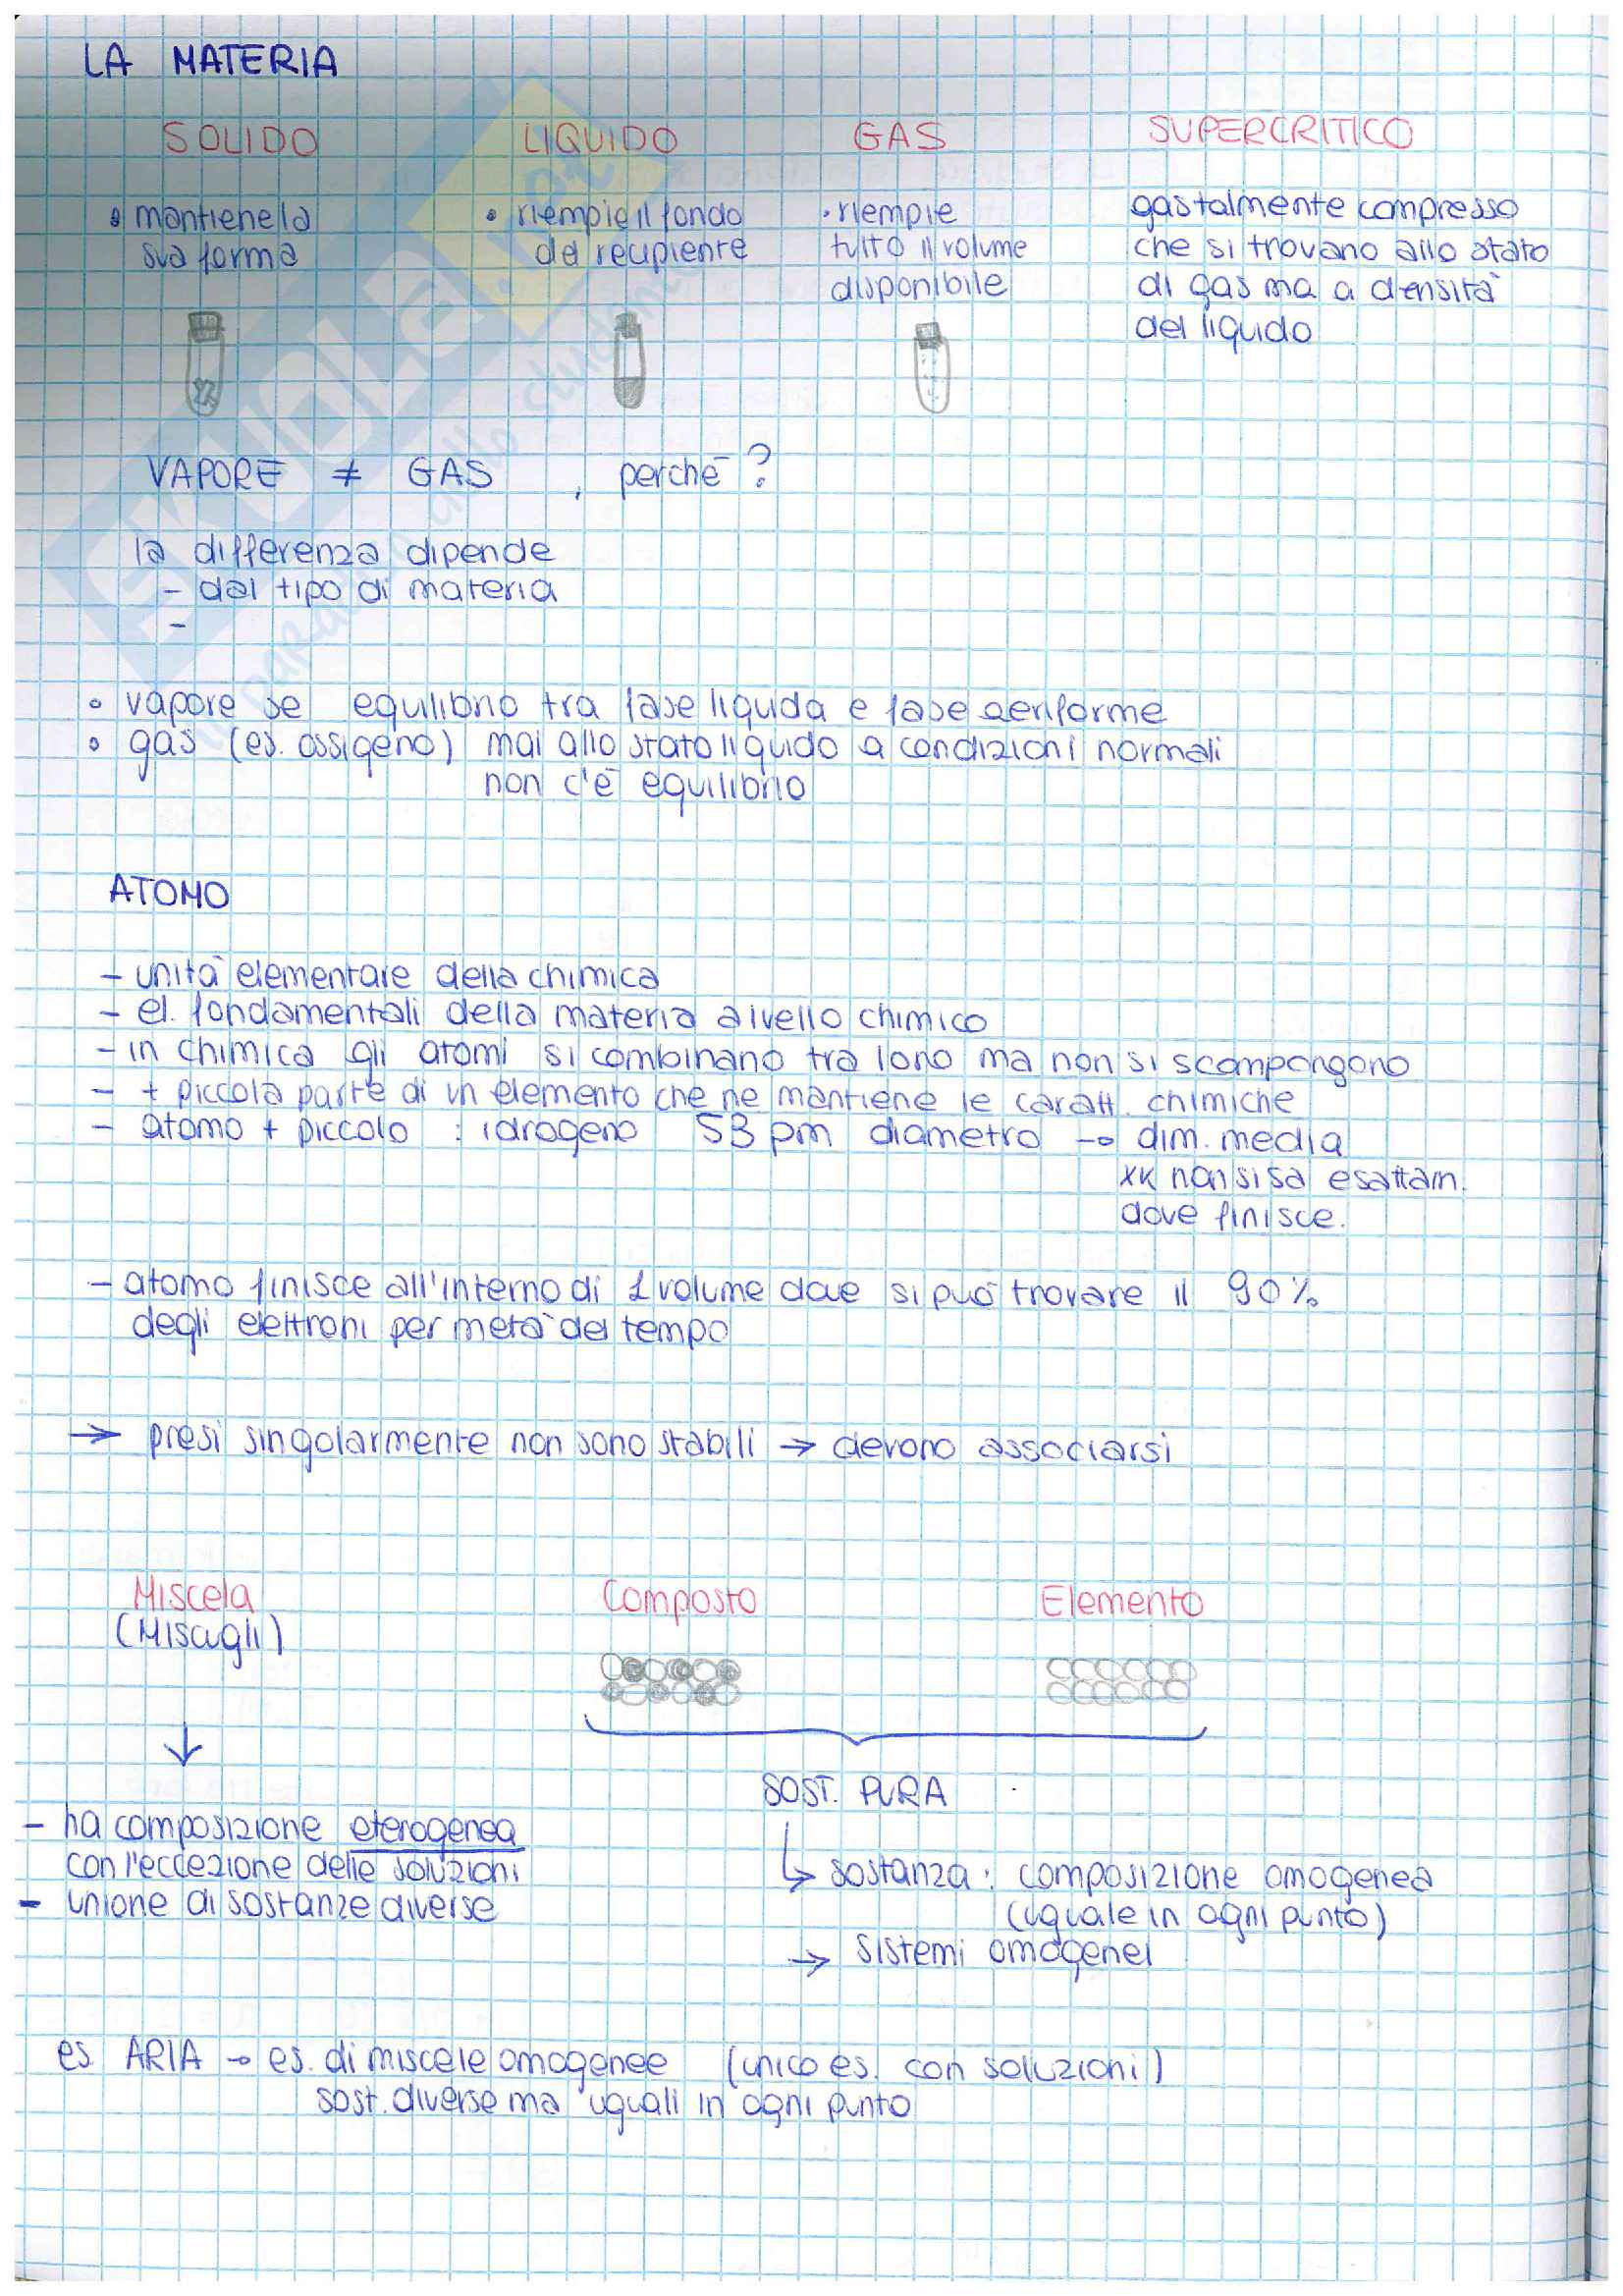 LA MATERIA
SOLIDO LIQUIDO GAS SUPERCRITICO
• mantiene la
sua forma
• riempie il fondo
del recipiente
• riempie
tutto il volume
disponibile
gas talmente compresso
che si trovano allo stato
di gas ma a densità
del liquido
VAPORE ≠ GAS , perchè?
la differenza dipende
- dal tipo di materia
-
• vapore se equilibrio tra fase liquida e fase aeriforme
• gas (es. ossigeno) mai allo stato liquido a condizioni normali
non c'è equilibrio
ATOMO
- unità elementare della chimica
- el. fondamentali della materia a livello chimico
- in chimica gli atomi si combinano tra loro ma non si scompongono
- + piccola parte di un elemento che ne mantiene le caratt. chimiche
- atomo + piccolo : idrogeno 53 pm diametro → dim. media
xk non si sa esattam.
dove finisce.
- atomo finisce all'interno di 1 volume dove si può trovare il 90%
degli elettroni per metà del tempo
→ presi singolarmente non sono stabili → devono associarsi
Miscela Composto Elemento
(Miscugli)
↓
SOST. PURA
- ha composizione eterogenea
con l'eccezione delle soluzioni
- unione di sostanze diverse
↳ sostanza: composizione omogenea
(uguale in ogni punto)
→ sistemi omogenei
es ARIA → es. di miscele omogenee (unico es. con soluzioni)
sost. diverse ma uguali in ogni punto